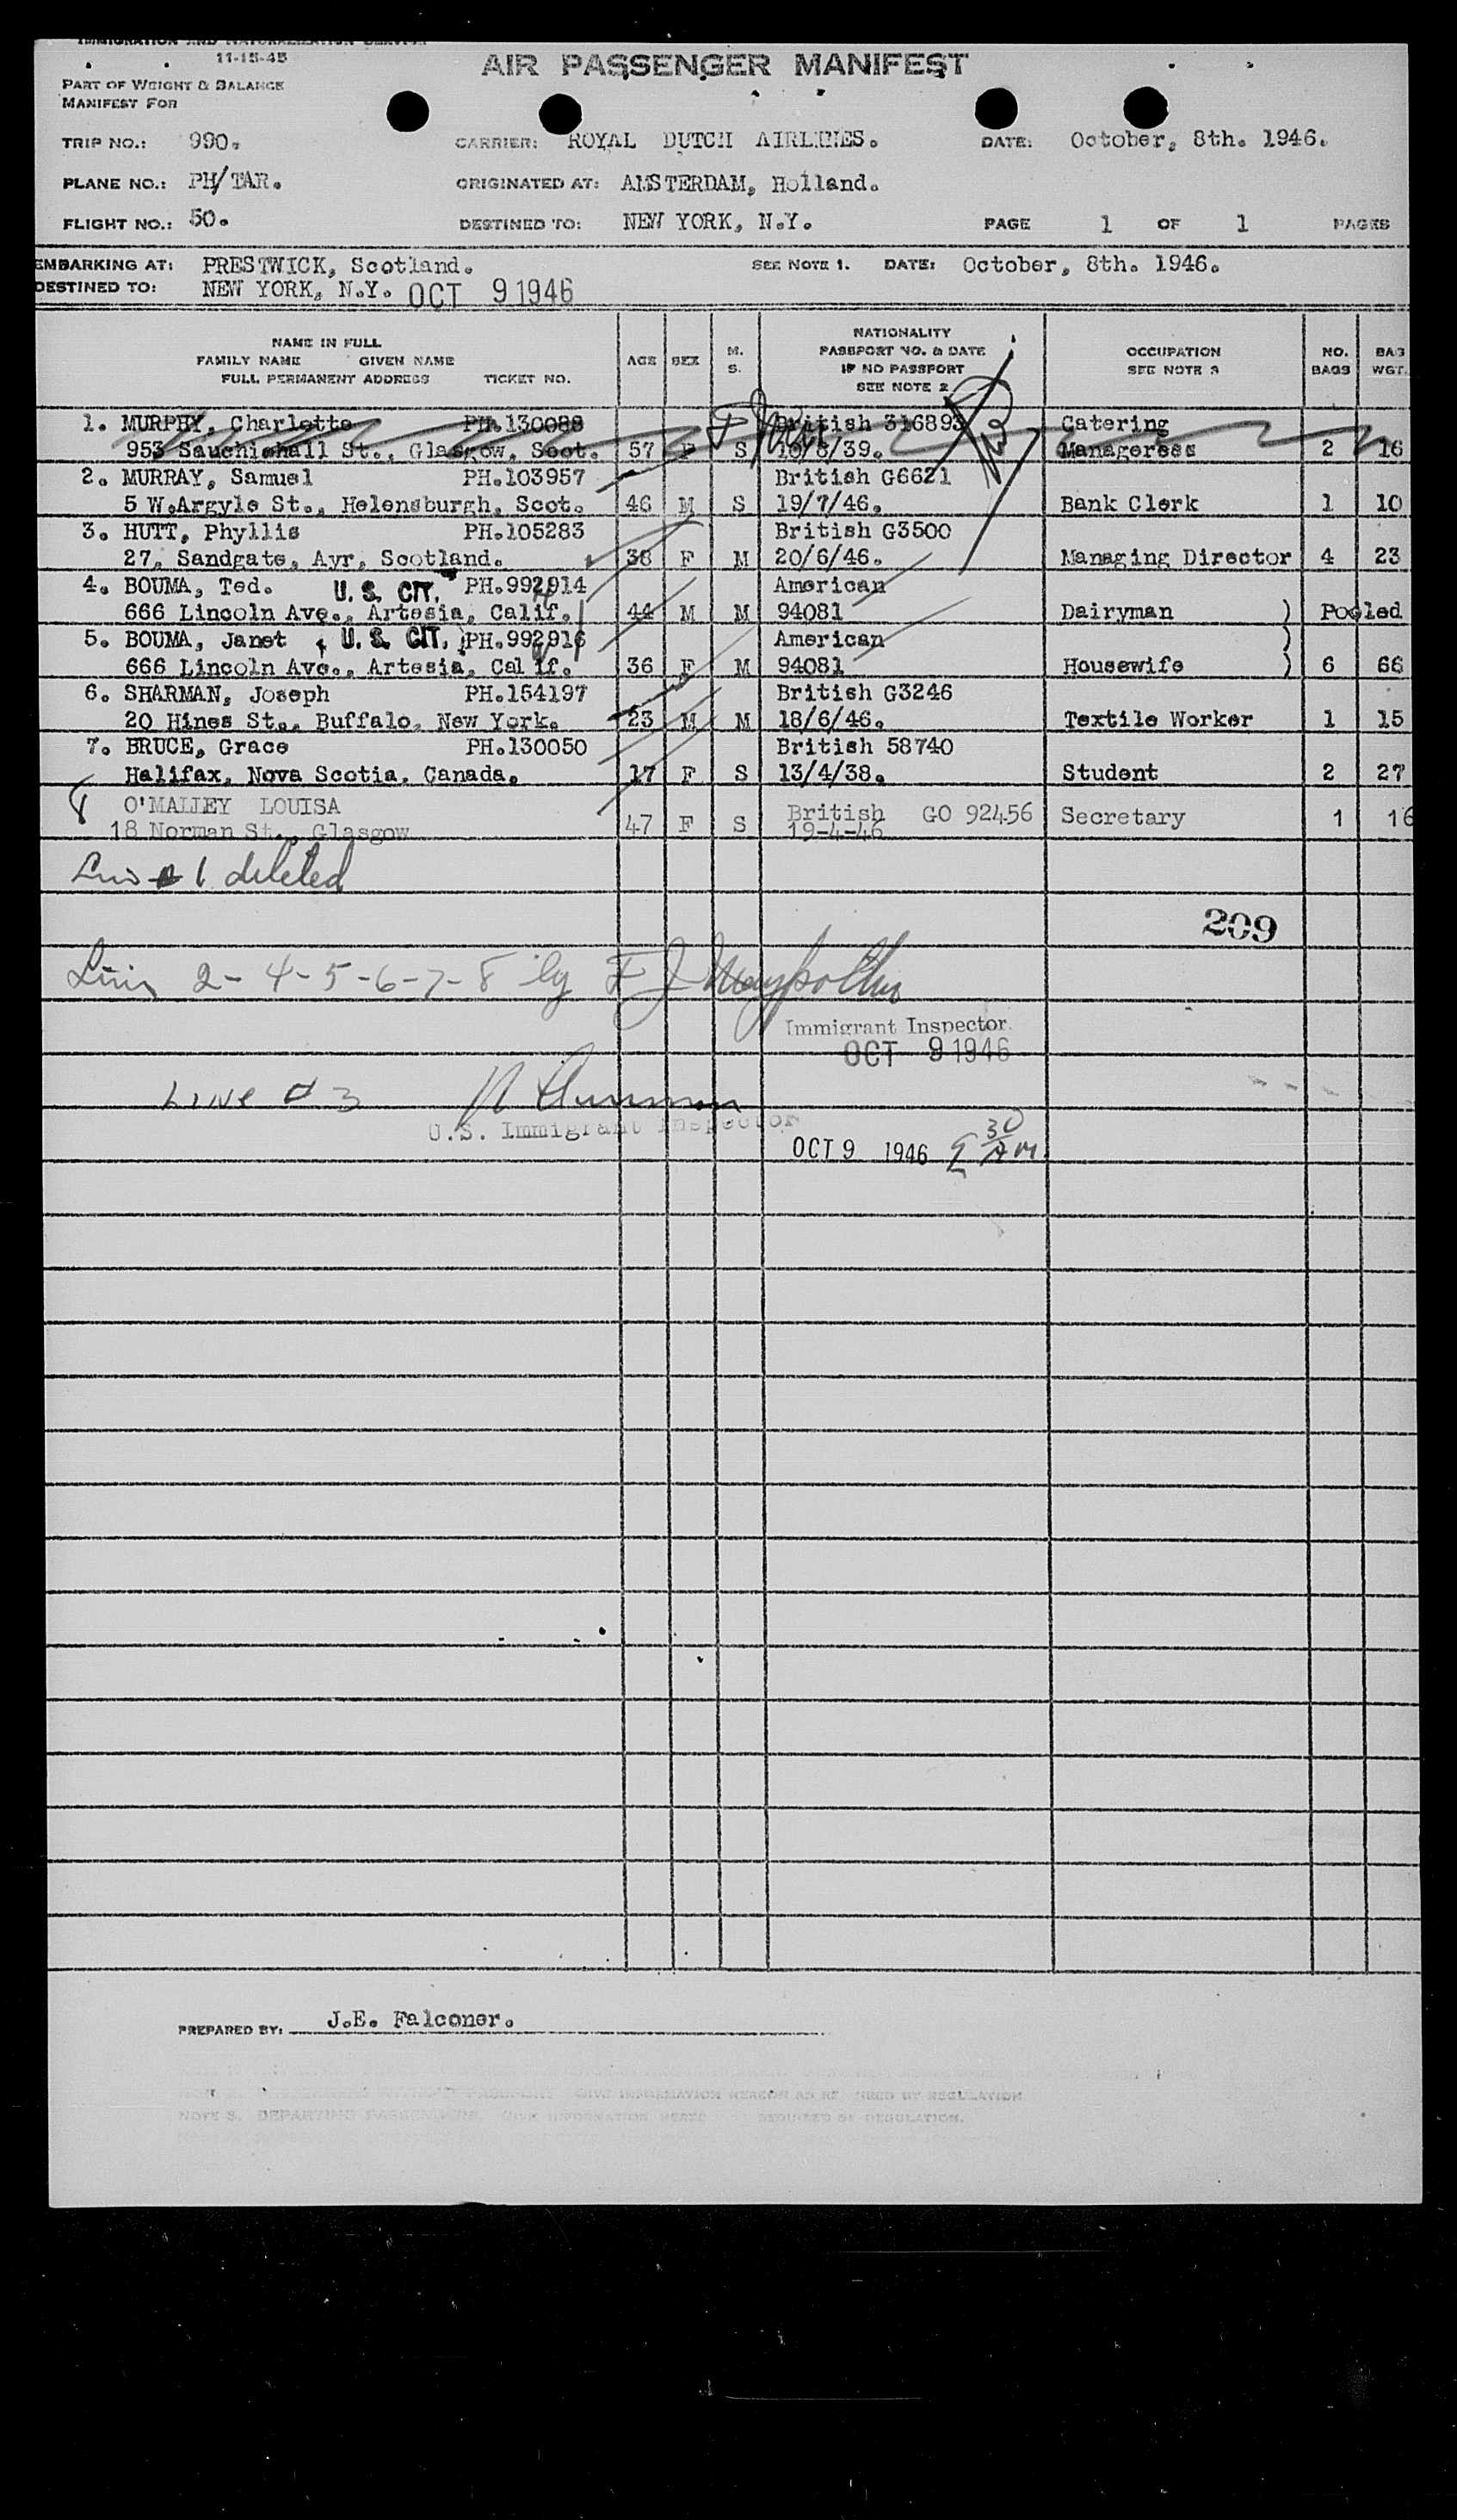 IMMIGRATION AND NATURALIZATION SERVICE
11-15-45
AIR PASSENGER MANIFEST
PART OF WEIGHT & BALANCE
MANIFEST FOR
TRIP NO.: 990. CARRIER: ROYAL DUTCH AIRLINES. DATE: October, 8th. 1946.
PLANE NO.: PH/TAR. ORIGINATED AT: AMSTERDAM, Holland.
FLIGHT NO.: 50. DESTINED TO: NEW YORK, N.Y. PAGE 1 OF 1 PAGES
EMBARKING AT: PRESTWICK, Scotland. SEE NOTE 1. DATE: October, 8th. 1946.
DESTINED TO: NEW YORK, N.Y. OCT 9 1946
NAME IN FULL
FAMILY NAME GIVEN NAME
FULL PERMANENT ADDRESS TICKET NO.
AGE SEX M. S.
NATIONALITY
PASSPORT NO. & DATE
IF NO PASSPORT
SEE NOTE 2
OCCUPATION
SEE NOTE 3
NO. BAGS
BAG WGT.
1. MURPHY, Charlotte PH.130088 British 316893 Catering
953 Sauchiehall St., Glasgow, Scot. 57 F S 10/8/39. Manageress 2 16
2. MURRAY, Samuel PH.103957 British G6621
5 W.Argyle St., Helensburgh, Scot. 46 M S 19/7/46. Bank Clerk 1 10
3. HUTT, Phyllis PH.105283 British G3500
27, Sandgate, Ayr, Scotland. 38 F M 20/6/46. Managing Director 4 23
4. BOUMA, Ted. U. S. CIT. PH.992914 American
666 Lincoln Ave., Artesia, Calif. 44 M M 94081 Dairyman ) Pooled
5. BOUMA, Janet U. S. CIT. PH.992916 American )
666 Lincoln Ave., Artesia, Cal if. 36 F M 94081 Housewife ) 6 66
6. SHARMAN, Joseph PH.154197 British G3246
20 Hines St., Buffalo, New York. 23 M M 18/6/46. Textile Worker 1 15
7. BRUCE, Grace PH.130050 British 58740
Halifax, Nova Scotia, Canada. 17 F S 13/4/38. Student 2 27
8 O'MALLEY LOUISA British GO 92456 Secretary 1 16
18 Norman St., Glasgow 47 F S 19-4-46
Line 1 deleted
209
Lines 2-4-5-6-7-8 by F J
Immigrant Inspector.
OCT 9 1946
LINE # 3
U.S. Immigrant Inspector
OCT 9 1946 30 AM
PREPARED BY: J.E. Falconer.
NOTE 3. DEPARTING PASSENGERS, GIVE INFORMATION HERE REQUIRED BY REGULATION.